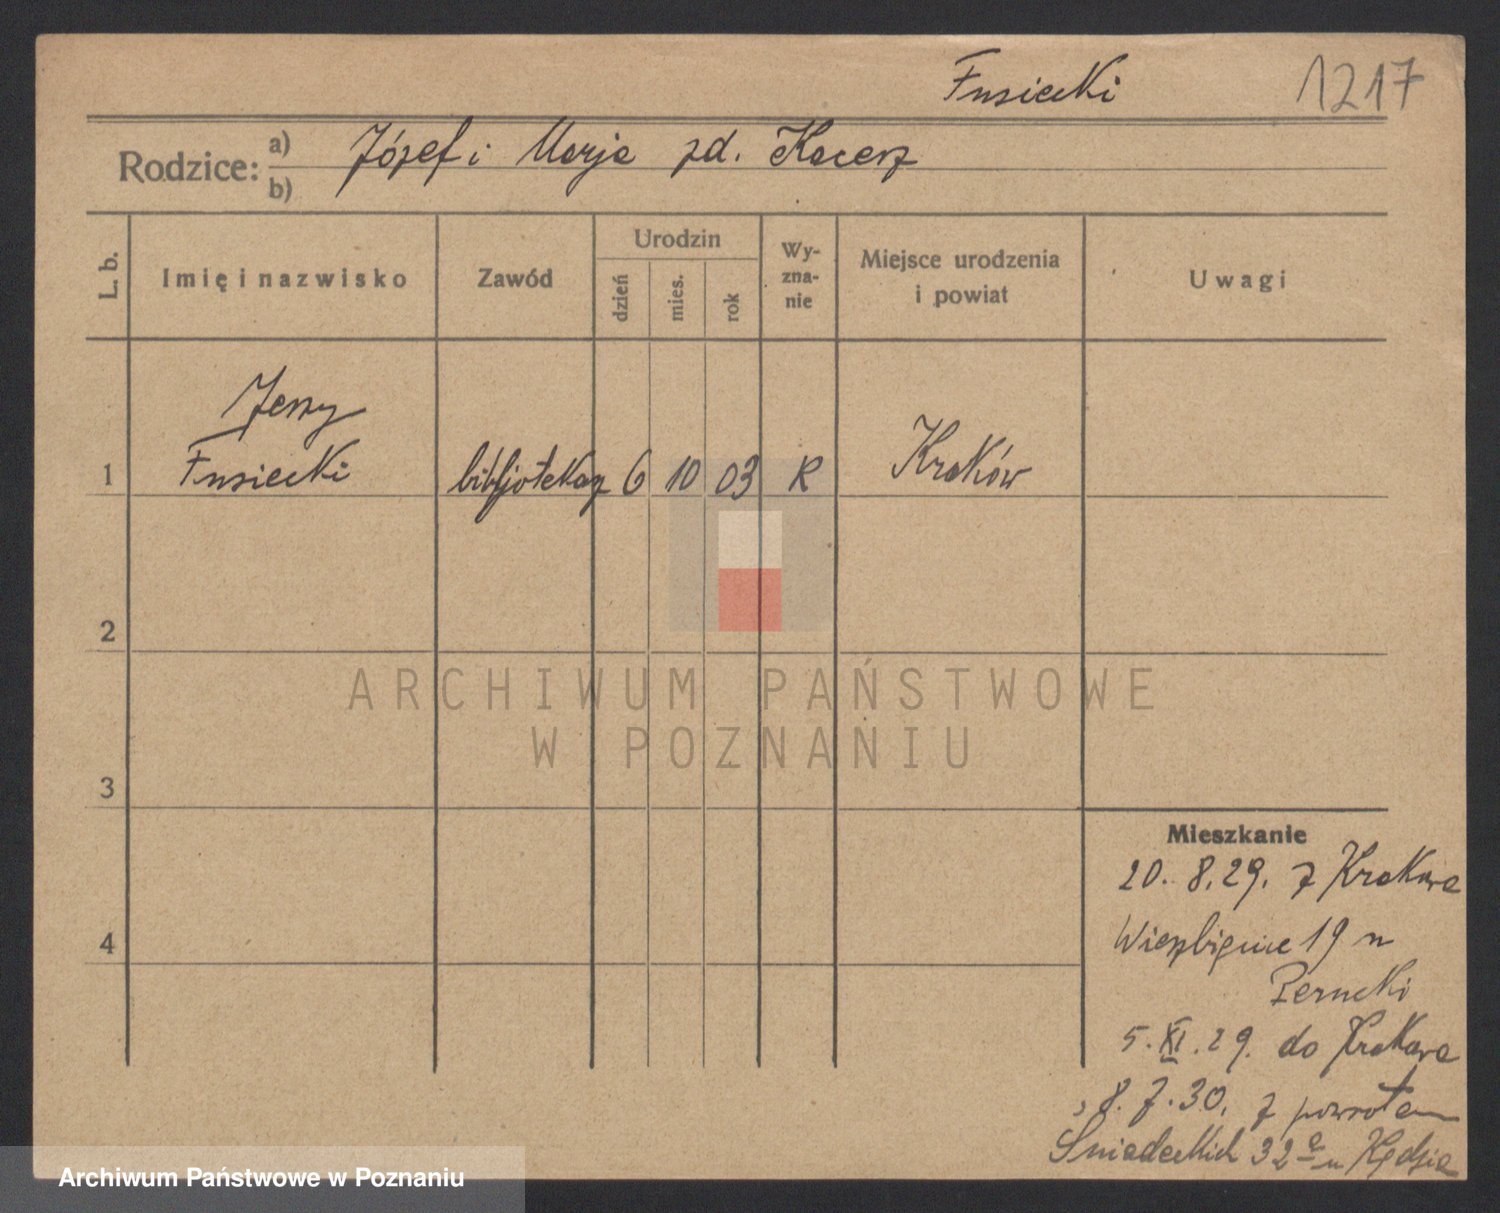 Fusiecki 1217
Rodzice: a) Józef i Marja zd. Kacerz
b)
L. b. Imię i nazwisko Zawód Urodzin dzień mies. rok Wy-zna-nie Miejsce urodzenia i powiat Uwagi
Jerzy
1 Fusiecki bibljotekarz 6 10 03 R Kraków
2
ARCHIWUM PAŃSTWOWE
W POZNANIU
3
Mieszkanie
20. 8. 29. z Krakowa
4 Wierzbięcice 19 u
5. XI. 29. do Krakowa
8. 7. 30. z powrotem
Śniadeckich 32 u
Archiwum Państwowe w Poznaniu